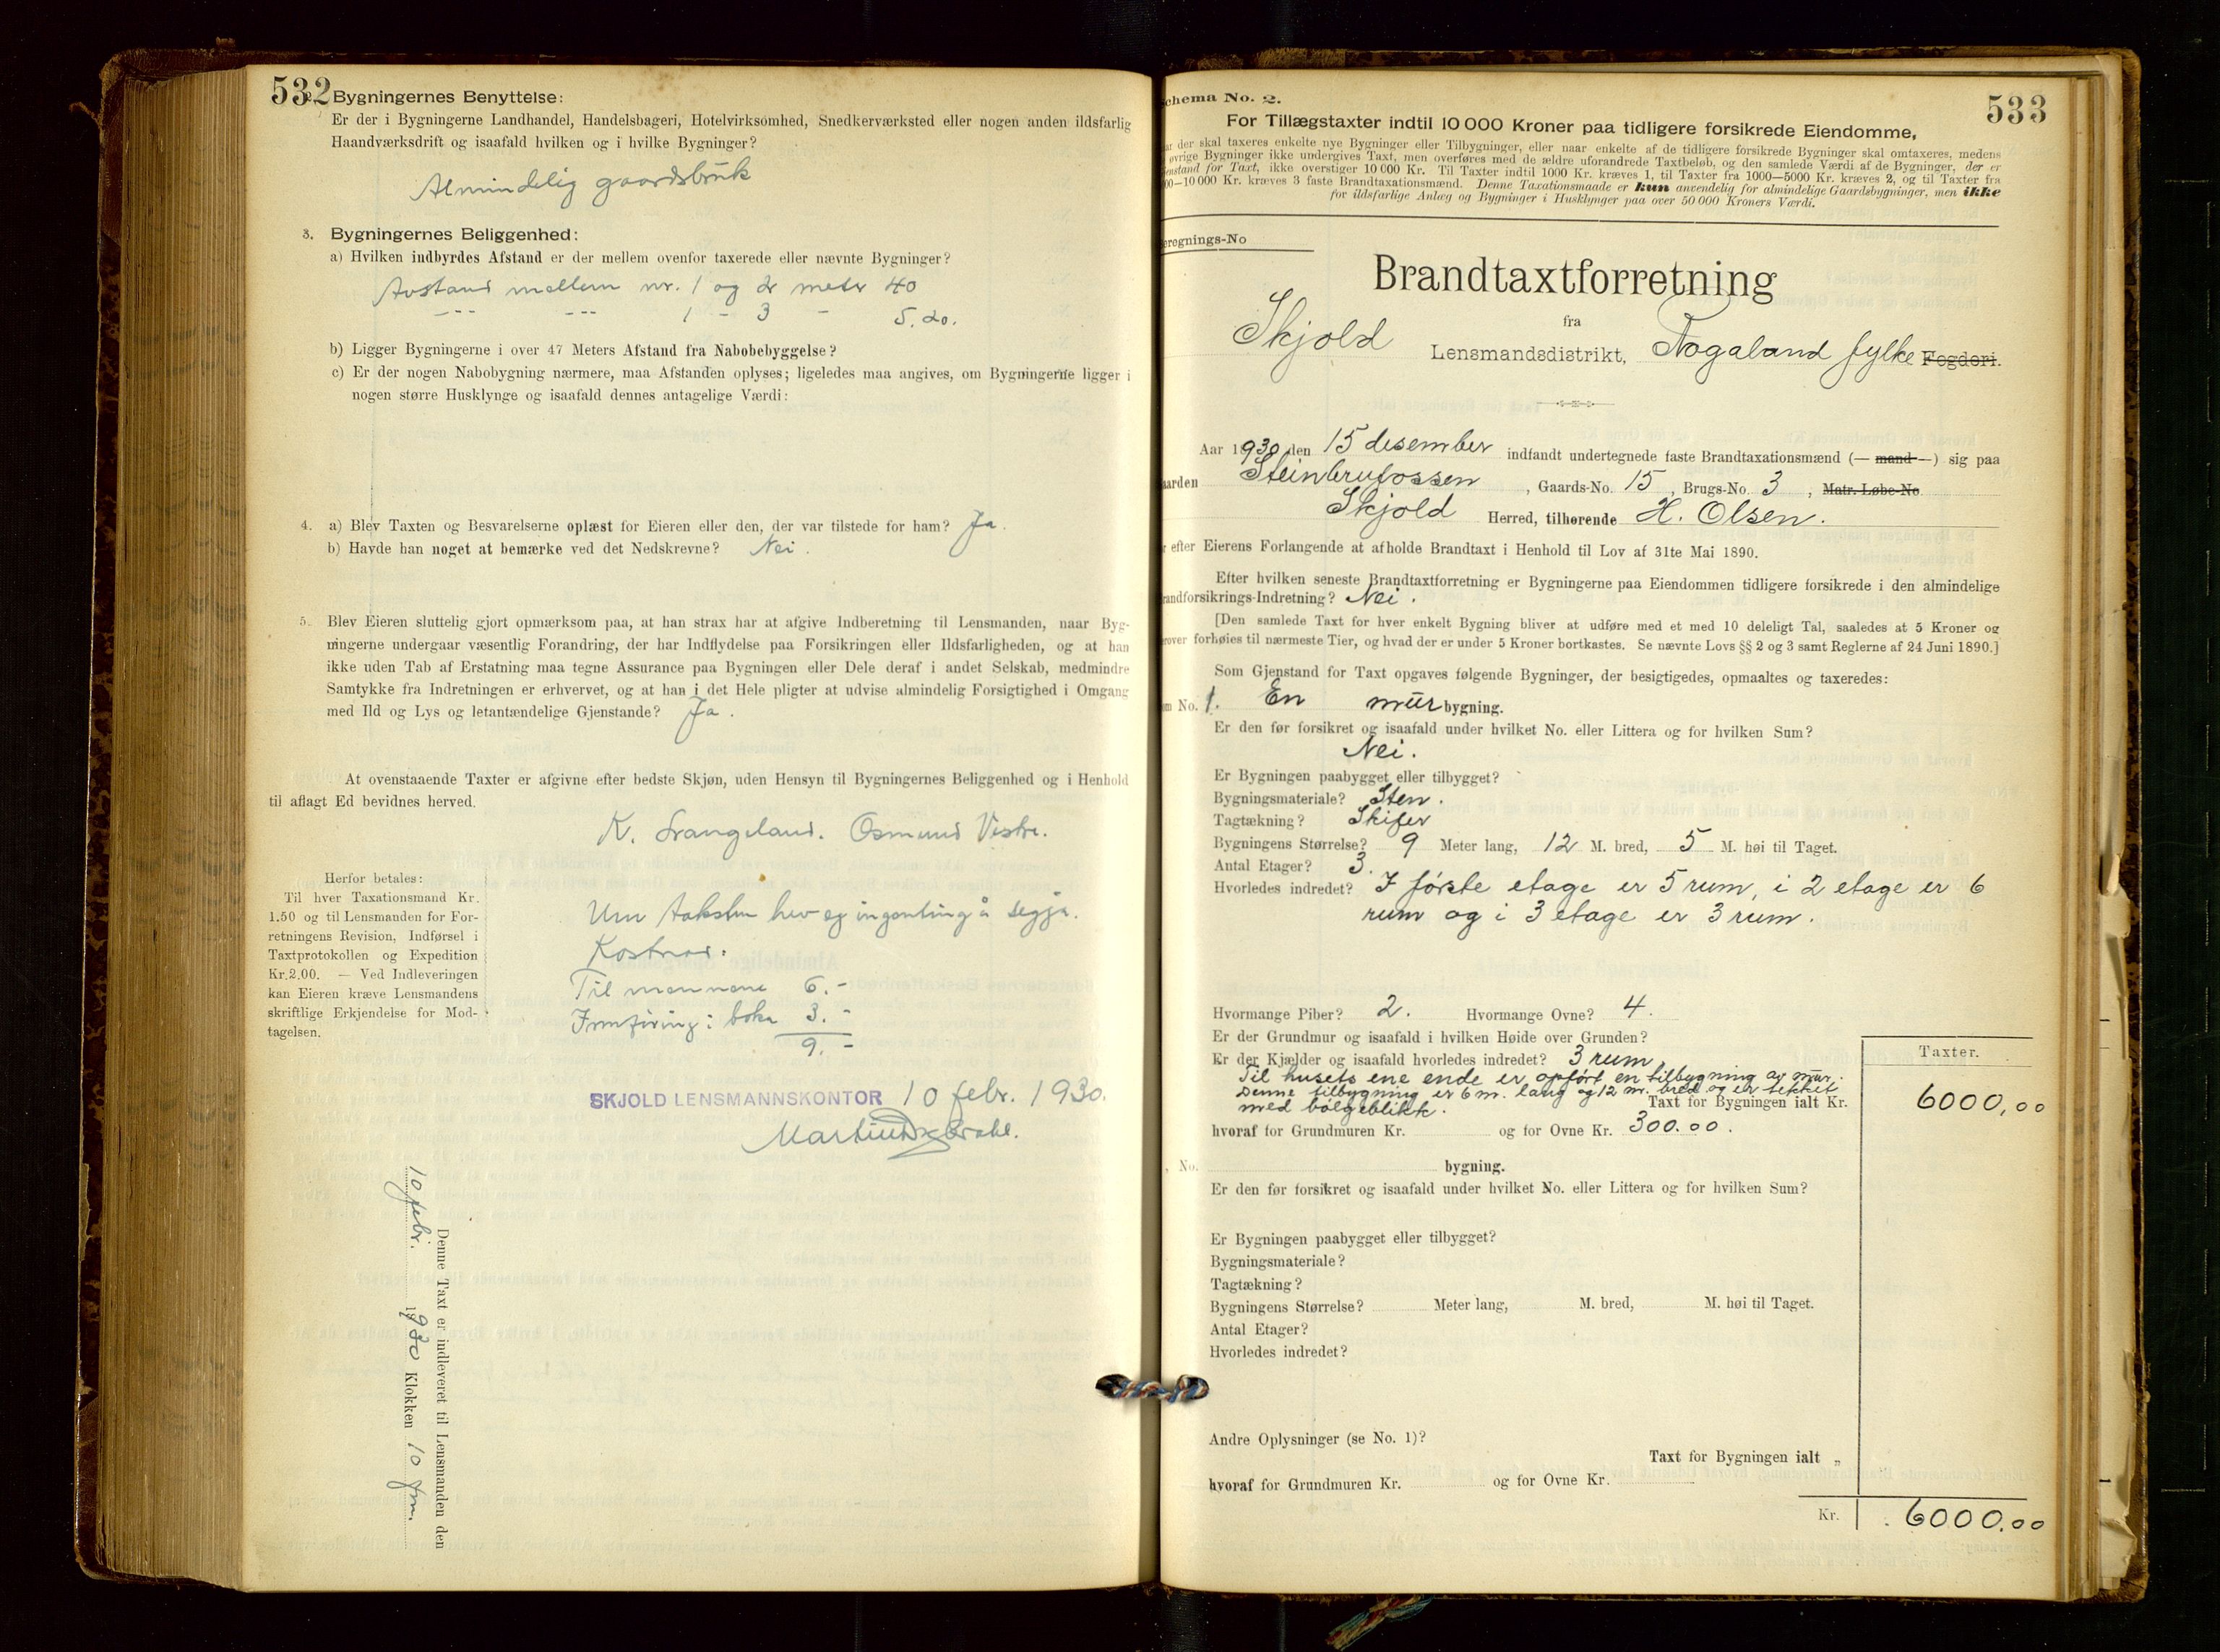 532
2. Bygningernes Benyttelse:
Er der i Bygningerne Landhandel, Handelsbageri, Hotelvirksomhed, Snedkerværksted eller nogen anden ildsfarlig
Haandværksdrift og isaafald hvilken og i hvilke Bygninger?
Almindelig gaardsbruk
3. Bygningernes Beliggenhed:
a) Hvilken indbyrdes Afstand er der mellem ovenfor taxerede eller nævnte Bygninger?
Avstand mellem nr. 1 og 2 meter 40
-"- -"- 1 - 3 - 5.20.
b) Ligger Bygningerne i over 47 Meters Afstand fra Nabobebyggelse?
c) Er der nogen Nabobygning nærmere, maa Afstanden oplyses; ligeledes maa angives, om Bygningerne ligger i
nogen større Husklynge og isaafald dennes antagelige Værdi:
4. a) Blev Taxten og Besvarelserne oplæst for Eieren eller den, der var tilstede for ham? Ja.
b) Havde han noget at bemærke ved det Nedskrevne? Nei.
5. Blev Eieren sluttelig gjort opmærksom paa, at han strax har at afgive Indberetning til Lensmanden, naar Byg-
ningerne undergaar væsentlig Forandring, der har Indflydelse paa Forsikringen eller Ildsfarligheden, og at han
ikke uden Tab af Erstatning maa tegne Assurance paa Bygningen eller Dele deraf i andet Selskab, medmindre
Samtykke fra Indretningen er erhvervet, og at han i det Hele pligter at udvise almindelig Forsigtighed i Omgang
med Ild og Lys og letantændelige Gjenstande? Ja.
At ovenstaaende Taxter er afgivne efter bedste Skjøn, uden Hensyn til Bygningernes Beliggenhed og i Henhold
til aflagt Ed bevidnes herved.
K. Frangeland. Osmund Vestre.
Herfor betales:
Til hver Taxationsmand Kr.
1.50 og til Lensmanden for For-
retningens Revision, Indførsel i
Taxtprotokollen og Expedition
Kr.2.00. — Ved Indleveringen
kan Eieren kræve Lensmandens
skriftlige Erkjendelse for Mod-
tagelsen.
Um taksten hev eg ingenting å segja.
Kostnad:
Til mennene 6.-
Innføring i boka 3.-
9.-
SKJOLD LENSMANNSKONTOR 10 febr. 1930.
Denne Taxt er indleveret til Lensmanden den
10 febr. 1930 Klokken 10 fm.
533
Schema No. 2.
For Tillægstaxter indtil 10 000 Kroner paa tidligere forsikrede Eiendomme,
ar der skal taxeres enkelte nye Bygninger eller Tilbygninger, eller naar enkelte af de tidligere forsikrede Bygninger skal omtaxeres, medens
øvrige Bygninger ikke undergives Taxt, men overføres med de ældre uforandrede Taxtbeløb, og den samlede Værdi af de Bygninger, der er
enstand for Taxt, ikke overstiger 10 000 Kr. Til Taxter indtil 1000 Kr. kræves 1, til Taxter fra 1000—5000 Kr. kræves 2, og til Taxter fra
00—10 000 Kr. kræves 3 faste Brandtaxationsmænd. Denne Taxationsmaade er kun anvendelig for almindelige Gaardsbygninger, men ikke
for ildsfarlige Anlæg og Bygninger i Husklynger paa over 50 000 Kroners Værdi.
eregnings-No
Brandtaxtforretning
fra
Skjold Lensmandsdistrikt, Rogaland fylke Fogderi.
Aar 1930 den 15 desember indfandt undertegnede faste Brandtaxationsmænd (— mand —) sig paa
aarden Steinbrufossen, Gaards-No. 15, Brugs-No. 3, Matr. Løbe-No
Skjold Herred, tilhørende H. Olsen.
r efter Eierens Forlangende at afholde Brandtaxt i Henhold til Lov af 31te Mai 1890.
Efter hvilken seneste Brandtaxtforretning er Bygningerne paa Eiendommen tidligere forsikrede i den almindelige
randforsikrings-Indretning? Nei.
[Den samlede Taxt for hver enkelt Bygning bliver at udføre med et med 10 deleligt Tal, saaledes at 5 Kroner og
erover forhøies til nærmeste Tier, og hvad der er under 5 Kroner bortkastes. Se nævnte Lovs §§ 2 og 3 samt Reglerne af 24 Juni 1890.]
Som Gjenstand for Taxt opgaves følgende Bygninger, der besigtigedes, opmaaltes og taxeredes:
m No. 1. En mur bygning.
Er den før forsikret og isaafald under hvilket No. eller Littera og for hvilken Sum?
Nei.
Er Bygningen paabygget eller tilbygget?
Bygningsmateriale? Sten.
Tagtækning? Skifer
Bygningens Størrelse? 9 Meter lang, 12 M. bred, 5 M. høi til Taget.
Antal Etager? 3.
Hvorledes indredet? I første etage er 5 rum, i 2 etage er 6
rum og i 3 etage er 3 rum.
Hvormange Piber? 2. Hvormange Ovne? 4.
Er der Grundmur og isaafald i hvilken Høide over Grunden?
Er der Kjælder og isaafald hvorledes indredet? 3 rum
Taxter.
Til husets ene ende er opført en tilbygning av mur.
Denne tilbygning er 6 m. lang og 12 m. bred og er tekket
med bølgeblikk. Taxt for Bygningen ialt Kr. 6000,00
hvoraf for Grundmuren Kr. og for Ovne Kr. 300.00.
, No. bygning.
Er den før forsikret og isaafald under hvilket No. eller Littera og for hvilken Sum?
Er Bygningen paabygget eller tilbygget?
Bygningsmateriale?
Tagtækning?
Bygningens Størrelse? Meter lang, M. bred, M. høi til Taget.
Antal Etager?
Hvorledes indredet?
Andre Oplysninger (se No. 1)?
Taxt for Bygningen ialt „
hvoraf for Grundmuren Kr. og for Ovne Kr.
Kr. 6000.00